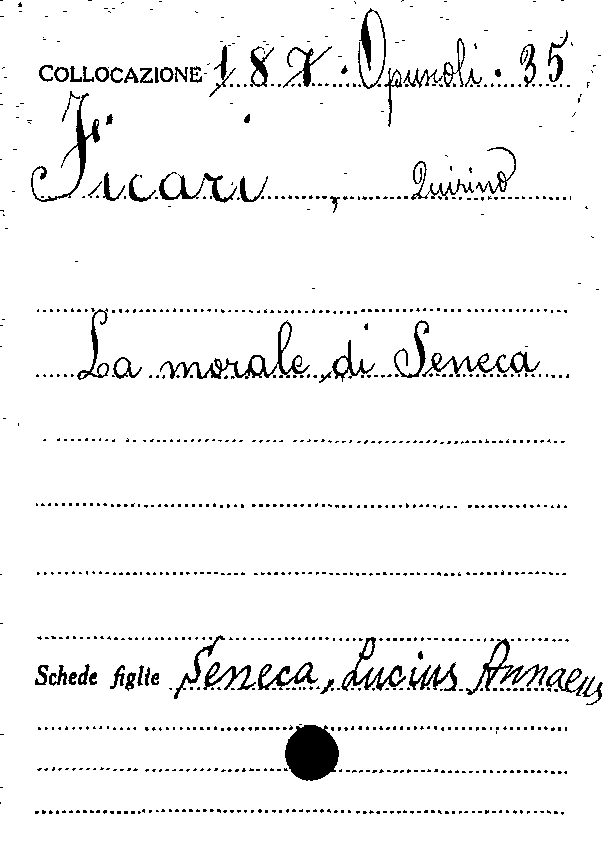 COLLOCAZIONE 187. Opuscoli. 35
Ficari, Quirino
La morale di Seneca
Schede figlie Seneca, Lucius Annaeus